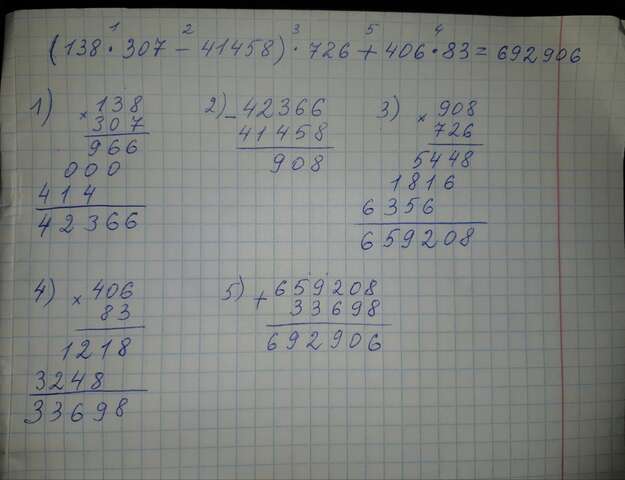 1 2 3 5 4
(138·307 - 41458)·726 + 406·83 = 692906
1) × 138
307
966
000
414
42366
2) - 42366
41458
908
3) × 908
726
5448
1816
6356
659208
4) × 406
83
1218
3248
33698
5) + 659208
33698
692906